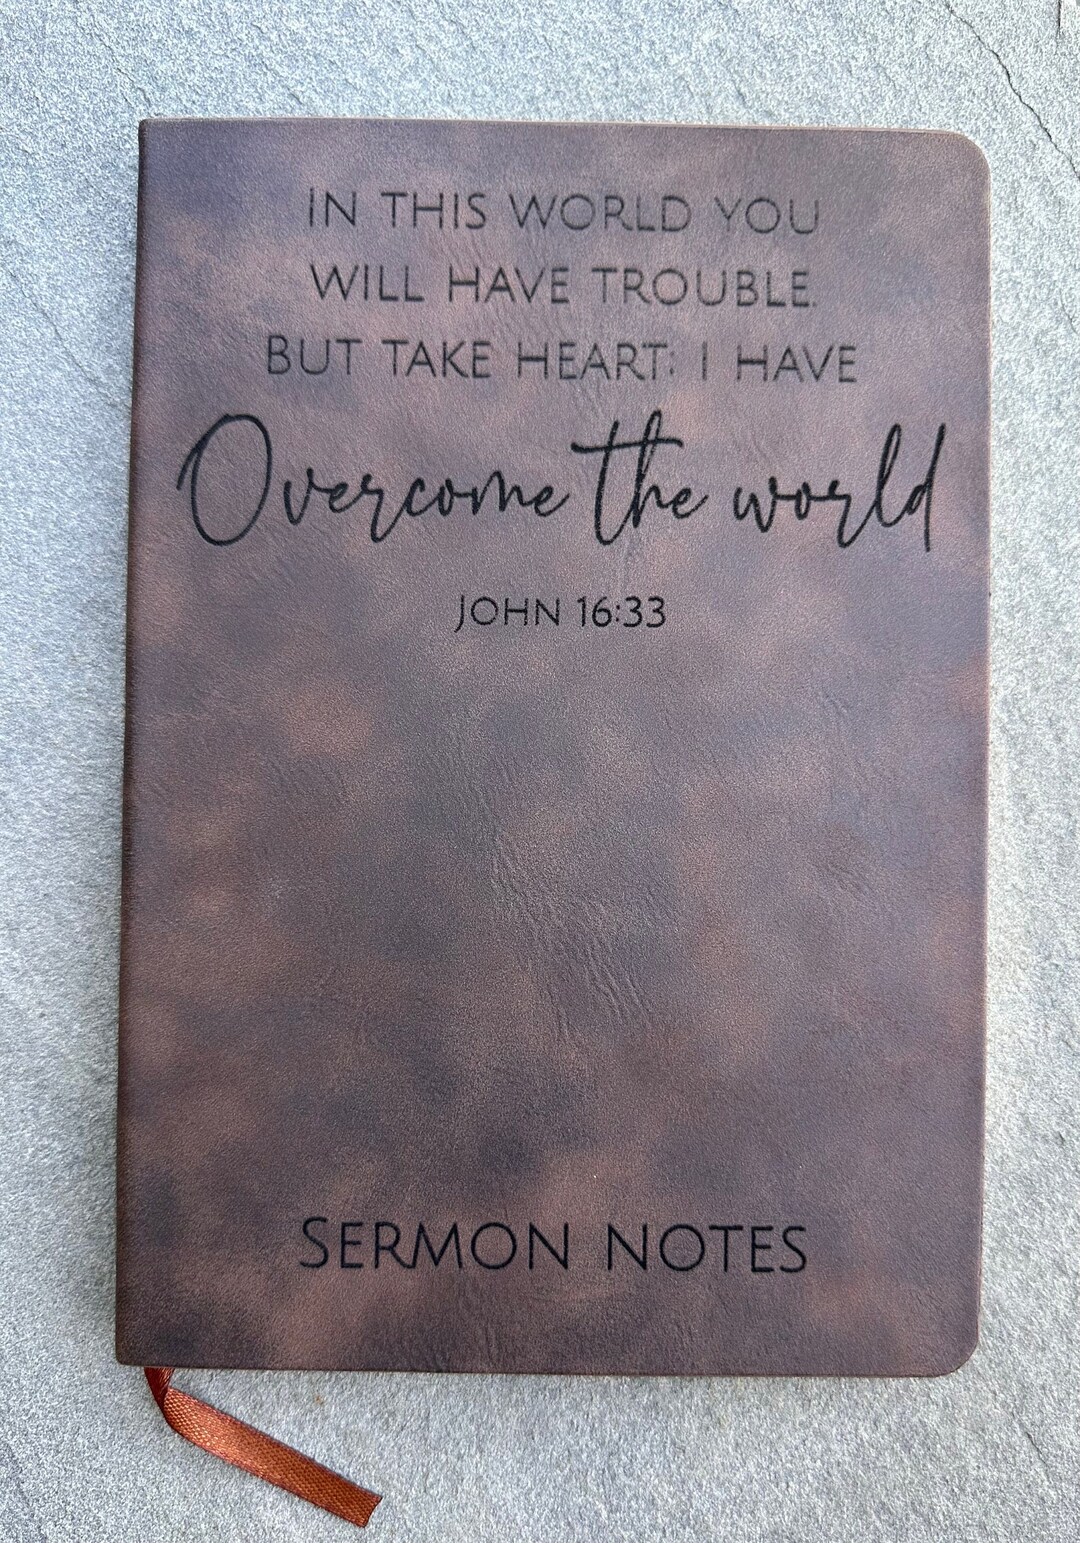 IN THIS WORLD YOU
WILL HAVE TROUBLE.
BUT TAKE HEART: I HAVE
Overcome the world
JOHN 16:33
SERMON NOTES